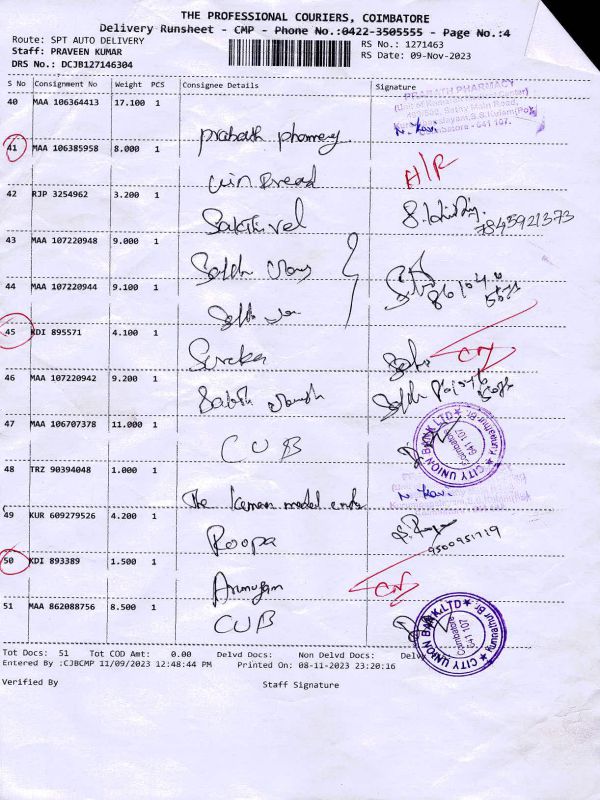 THE PROFESSIONAL COURIERS, COIMBATORE
Delivery Runsheet - CMP - Phone No.:0422-3505555 - Page No.:4
Route: SPT AUTO DELIVERY
RS No.: 1271463
Staff: PRAVEEN KUMAR
RS Date: 09-Nov-2023
DRS No.: DCJB127146304
S No Consignment No Weight PCS Consignee Details Signature
40 MAA 106364413 17.100 1
PRABATH PHARMACY
prabath pharmacy
N. Ravi
41 MAA 106385958 8.000 1
win Bread
H/R
42 RJP 3254962 3.200 1
Sakthivel
7845921373
43 MAA 107220948 9.000 1
44 MAA 107220944 9.100 1
45 KDI 895571 4.100 1
46 MAA 107220942 9.200 1
47 MAA 106707378 11.000 1
CUB
CITY UNION BANK LTD
Coimbatore
641 107
48 TRZ 90394048 1.000 1
The
N. Ravi
49 KUR 609279526 4.200 1
Roopa
9500951719
50 KDI 893389 1.500 1
Arumugam
51 MAA 862088756 8.500 1
CUB
CITY UNION BANK LTD
Coimbatore
641 107
Tot Docs: 51 Tot COD Amt: 0.00 Delvd Docs: Non Delvd Docs: Delv
Entered By :CJBCMP 11/09/2023 12:48:44 PM Printed On: 08-11-2023 23:20:16
Verified By Staff Signature